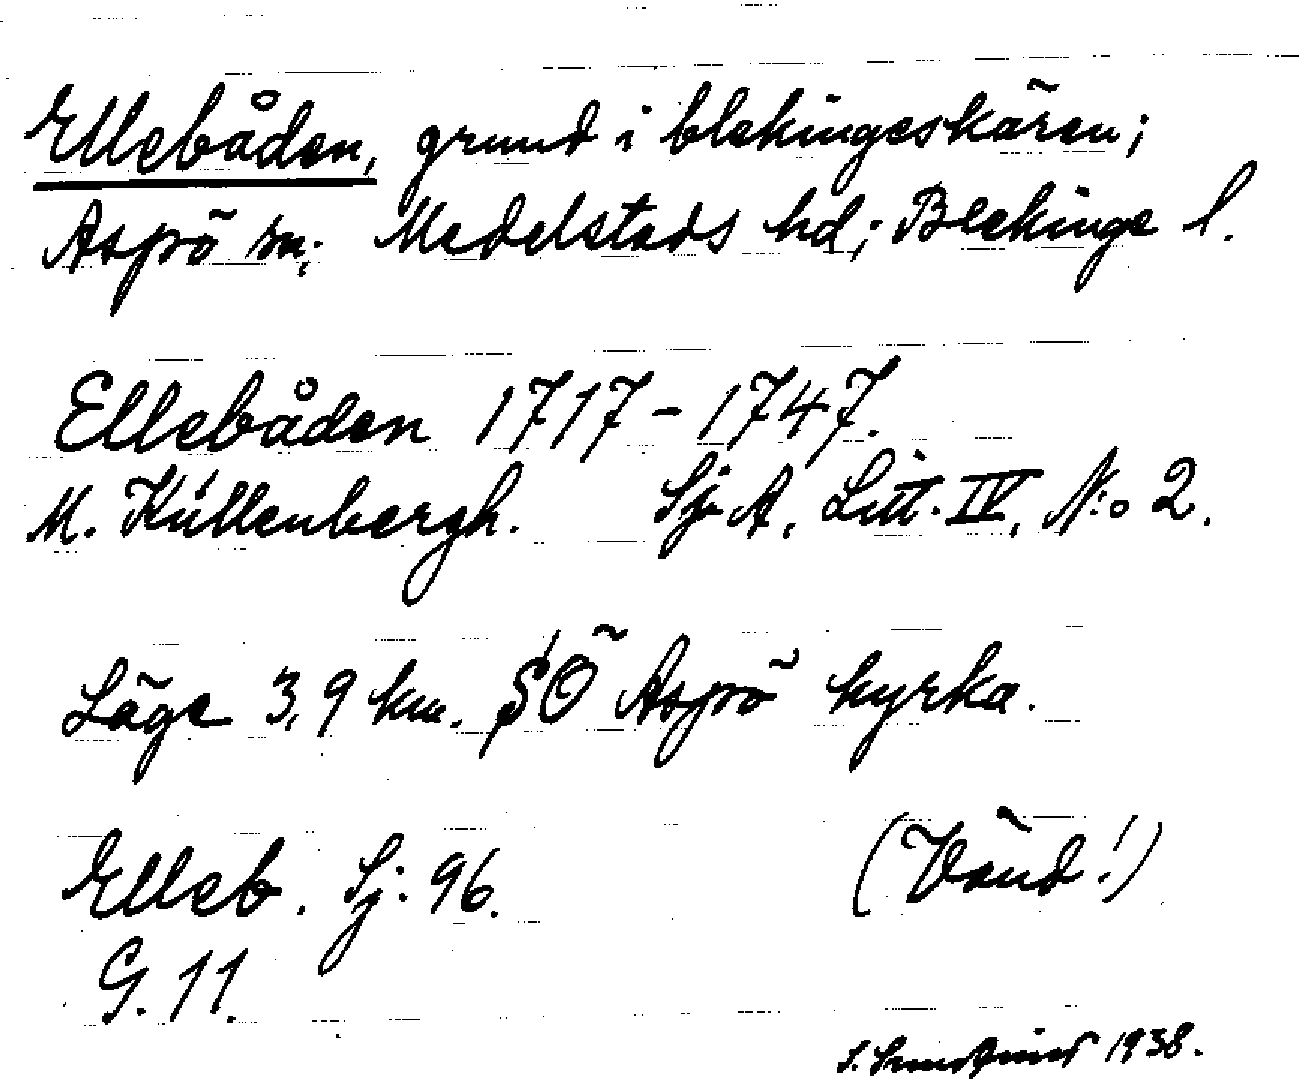 Ellebåden, grund i blekingeskären;
Aspö sn; Medelstads hd; Blekinge l.
Ellebåden 1717-1747.
M. Küllenbergh. Sj. A. Litt. IV, N:o 2.
Läge 3,9 km. SÖ Aspö kyrka.
Elleb. Sj. 96. (Vänd!)
G. 11.
S. 1938.